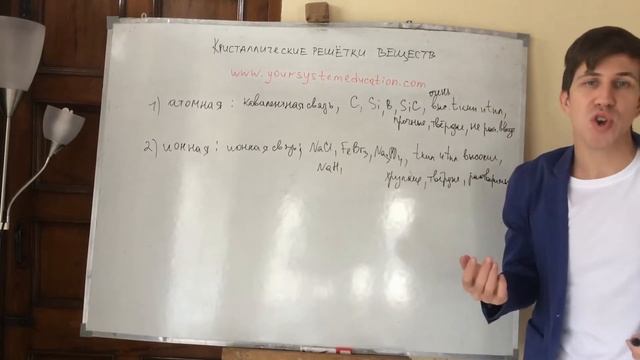 Кристаллические решётки веществ
www.yoursystemeducation.com
1) атомная: ковалентная связь, C, Si, B, SiC, очень выс. tкип и tпл,
прочные, твёрдые, не раств. в воде
2) ионная: ионная связь, NaCl, FeBr3, tкип и tпл высокие,
NaH, хрупкие, твёрдые, растворимые